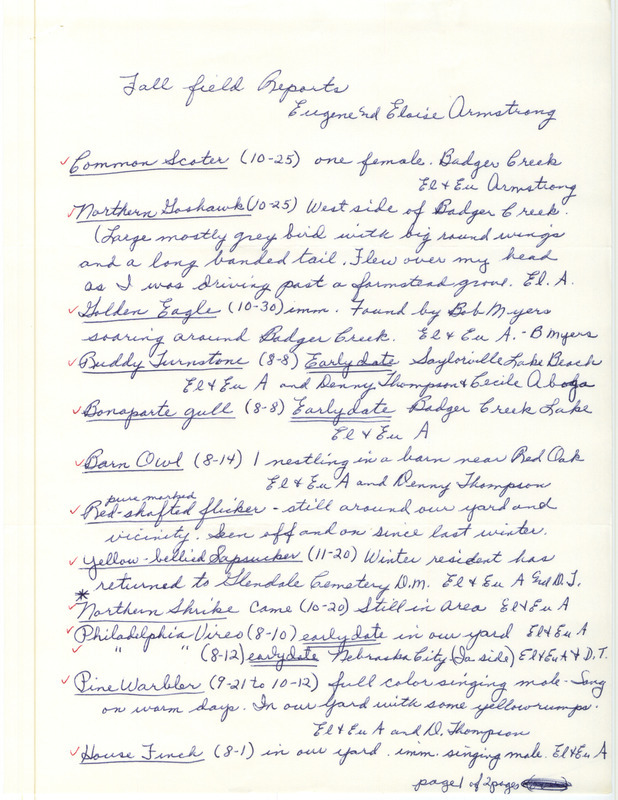 Fall field Reports
Eugene and Eloise Armstrong
✓ Common Scoter (10-25) one female. Badger Creek
El & Eu Armstrong
✓ Northern Goshawk (10-25) West side of Badger Creek.
(Large mostly grey bird with big round wings
and a long banded tail. Flew over my head
as I was driving past a farmstead grove. El. A.
✓ Golden Eagle (10-30) imm. Found by Bob Myers
soaring around Badger Creek. El & Eu A. - B Myers
✓ Ruddy Turnstone (8-8) Early date Saylorville Lake Beach
El & Eu A and Denny Thompson & Cecile Aboga
✓ Bonaparte gull (8-8) Early date Badger Creek Lake
El & Eu A
✓ Barn Owl (8-14) 1 nestling in a barn near Red Oak
El & Eu A and Denny Thompson
pure marked
✓ Red-shafted flicker - still around our yard and
vicinity. Seen off and on since last winter.
✓ Yellow-bellied Sapsucker (11-20) Winter resident has
returned to Glendale Cemetery D.M. El & Eu A and D.T.
*
✓ Northern Shrike came (10-20) Still in area El & Eu A
✓ Philadelphia Vireo (8-10) early date in our yard El & Eu A
✓ " " (8-12) early date Nebraska City (Ia side) El & Eu A & D.T.
✓ Pine Warbler (9-21 to 10-12) full color singing male - Song
on warm days. In our yard with some yellowrumps.
El & Eu A and D. Thompson
✓ House Finch (8-1) in our yard. imm. singing male. El & Eu A
page 1 of 2 pages